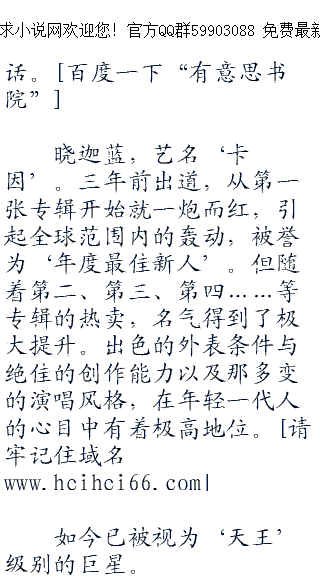 求小说网欢迎您! 官方QQ群59903088 免费最新
话。[百度一下“有意思书
院”]
晓迦蓝，艺名‘卡
因’。三年前出道，从第一
张专辑开始就一炮而红，引
起全球范围内的轰动，被誉
为‘年度最住新人’。但随
着第二、第三、第四……等
专辑的热卖，名气得到了极
大提升。出色的外表条件与
绝住的创作能力以及那多变
的演唱风格，在年轻一代人
的心目中有着极高地位。[请
牢记住域名
www.hcihci66.com|
如今已被视为‘天王’
级别的巨星。